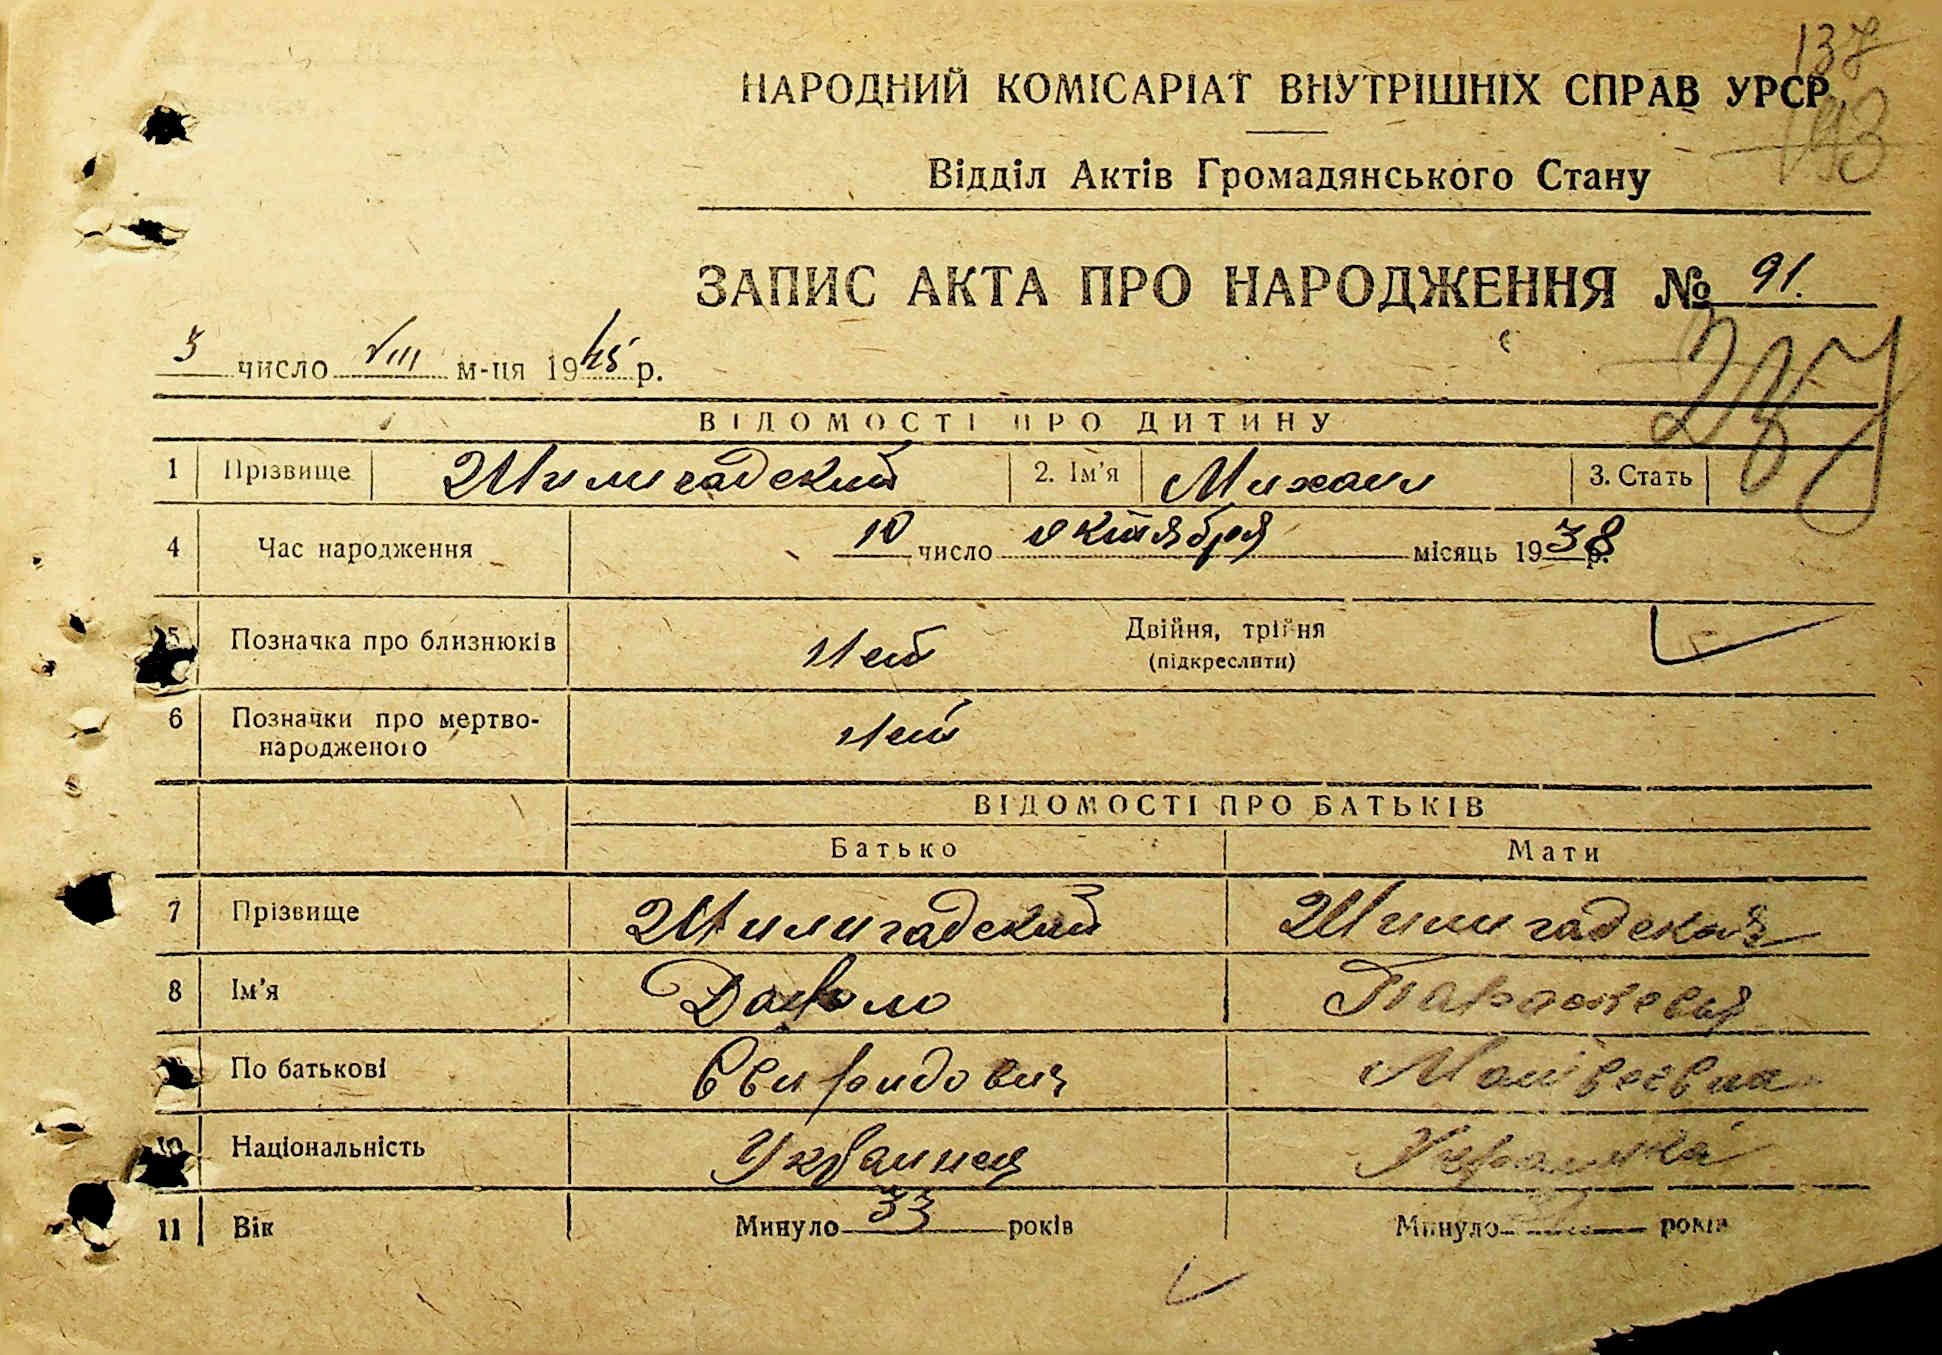 137
193
НАРОДНИЙ КОМІСАРІАТ ВНУТРІШНІХ СПРАВ УРСР
Відділ Актів Громадянського Стану
ЗАПИС АКТА ПРО НАРОДЖЕННЯ № 91.
3 число VIII м-ця 1945 р.
ВІДОМОСТІ ПРО ДИТИНУ
1 Прізвище Шилигадский 2. Ім'я Михаил 3. Стать
4 Час народження 10 число октября місяць 1938 р.
5 Позначка про близнюків Нет Двійня, трійня
(підкреслити)
6 Позначки про мертво-
народженого Нет
ВІДОМОСТІ ПРО БАТЬКІВ
Батько Мати
7 Прізвище Шилигадский Шилигадская
8 Ім'я
По батькові Свиридович Матвеевна
Національність Украинец Украинка
11 Вік Минуло 33 років Минуло років